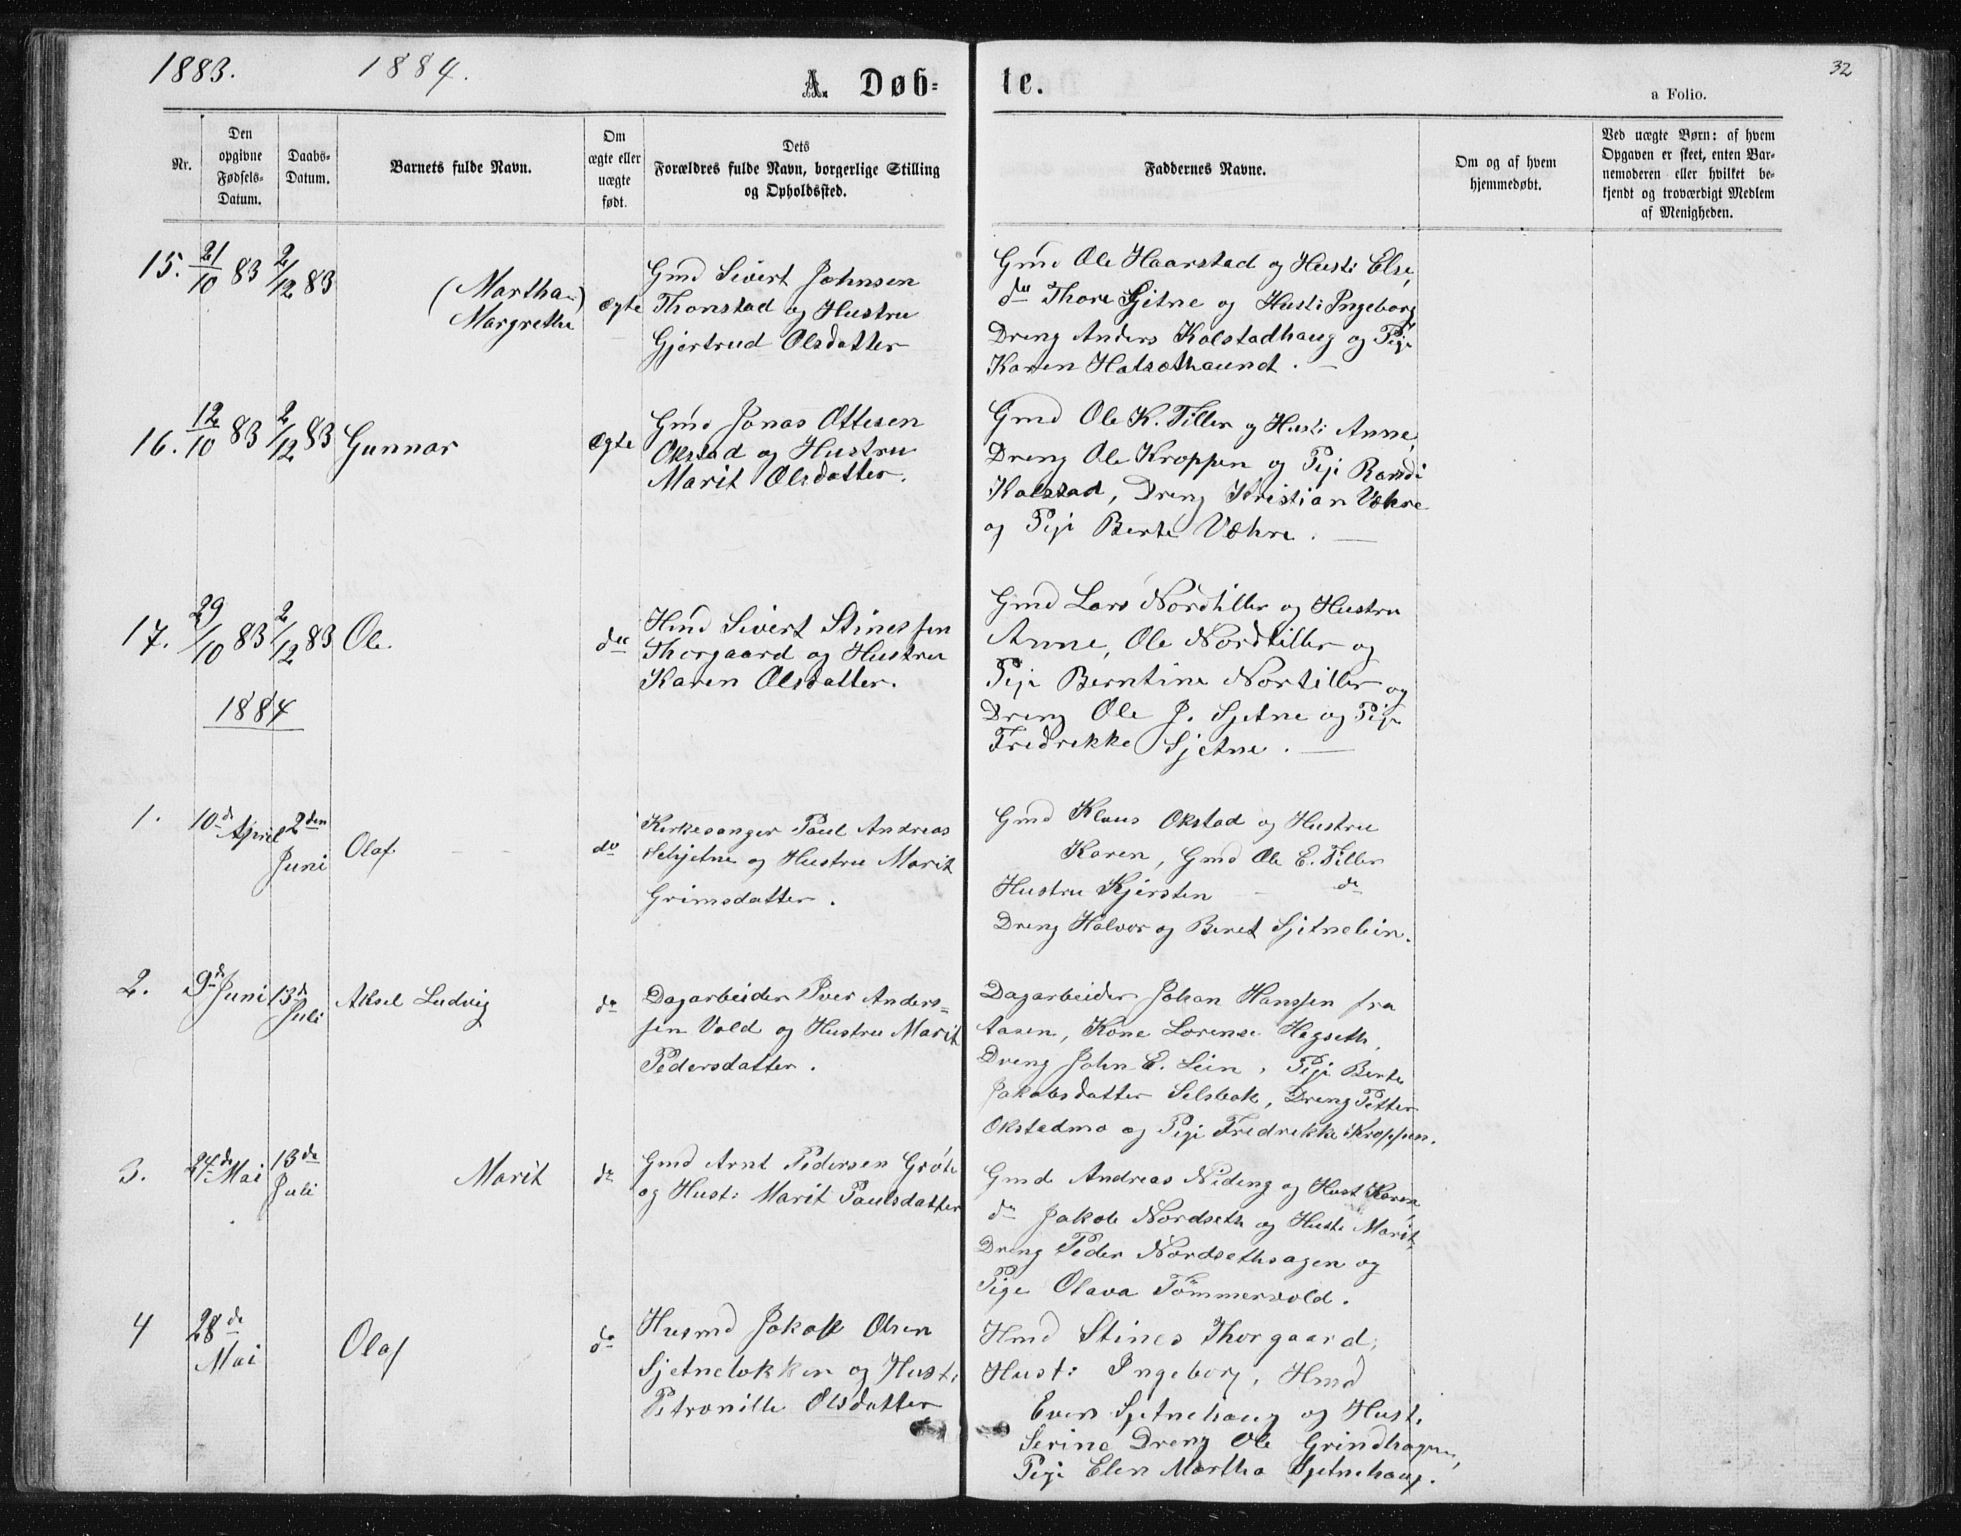 1883. 1884.
A. Døb-
te.
32
a Folio.
Nr.
Den
opgivne
Fødsels-
Datum.
Daabs-
Datum.
Barnets fulde Navn.
Om
ægte eller
uægte
født.
Dets
Forældres fulde Navn, borgerlige Stilling
og Opholdssted.
Faddernes Navne.
Om og af hvem
hjemmedøbt.
Ved uægte Børn: af hvem
Opgaven er skeet, enten Bar-
nemoderen eller hvilket be-
kjendt og troværdigt Medlem
af Menigheden.
15. 21/10 83 2/12 83
(Martha)
Margrethe
ægte
Gmd Sivert Johnsen
Thonstad og Hustru
Gjertrud Olsdatter
Gmd Ole Haarstad og Hust: Else,
do Thore Sjetne og Hust: Ingeborg
Dreng Anders Kolstadhaug og Pige
Karen Hatsethaundt. —
16. 12/10 83 2/12 83 Gunnar
ægte
Gmd Jonas Ottesen
Okstad og Hustru
Marit Olsdatter.
Gmd Ole K. Tiller og Hust: Anne,
Dreng Ole Kroppen og Pige Randi
Kolstad, Dreng Kristian Væhre
og Pige Berte Væhre. —
17. 29/10 83 2/12 83 Ole.
do
Hmd Sivert Stinessen
Thorgaard og Hustru
Karen Olsdatter.
Gmd Lars Nordtiller og Hustru
Anne, Ole Nordtiller og
Pige Berntine Nortiller og
Dreng Ole J. Sjetne og Pige
Fredrikke Sjetne. —
1884
1. 10de April 2den Juni
Olaf
do
Kirkesanger Paul Andreas
Schjetne og Hustru Marit
Grimsdatter.
Gmd Klaus Okstad og Hustru
Karen, Gmd Ole E. Tiller
Hustru Kjersten — do
Dreng Halvor og Beret Sjetnelein.
2. 9de Juni 13de Juli
Aksel Ludvig
do
Dagarbeider Iver Anders-
sen Vold og Hustru Marit
Pedersdatter.
Dagarbeider Johan Hanssen fra
Aasen, Kone Lorense Hegseth,
Dreng John E. Lein, Pige Berte
Jakobsdatter Selsbak, Dreng Petter
Okstadmo og Pige Fredrikke Kroppen.
3. 24de Mai 13de Juli
Marit
do
Gmd Arnt Pedersen
og Hust: Marit Paulsdatter
Gmd Andreas Niding og Hust Karen,
do Jakob Nordseth og Hust: Marit,
Dreng Peder Nordsethsagen og
Pige Olava Tømmervold.
4 28de Mai
Olaf
do
Husmd Jakob Olsen
Sjetneløkken og Hust:
Petronille Olsdatter
Hmd Stines Thorgaard,
Hust: Ingeborg, Hmd
Even Sjetnehaug og Hust:
Serine Dreng Ole Grindhagen,
Pige Elen Martha Sjetnehaug.